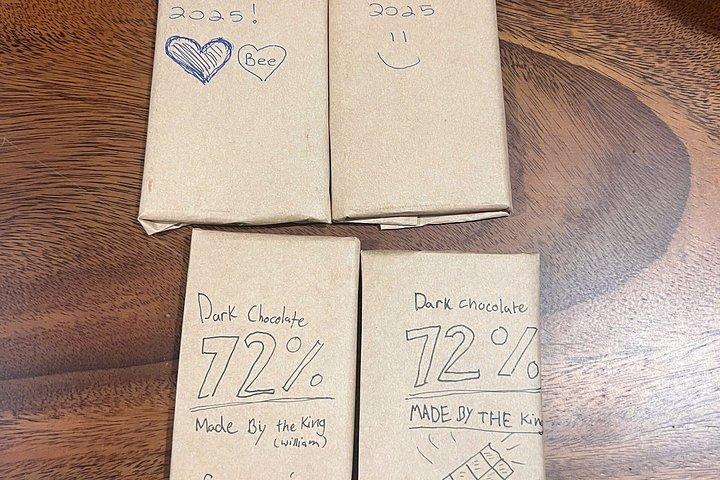 2025!
Bee
2025
Dark Chocolate
72%
Made By the King
(william)
Dark chocolate
72%
MADE BY THE King